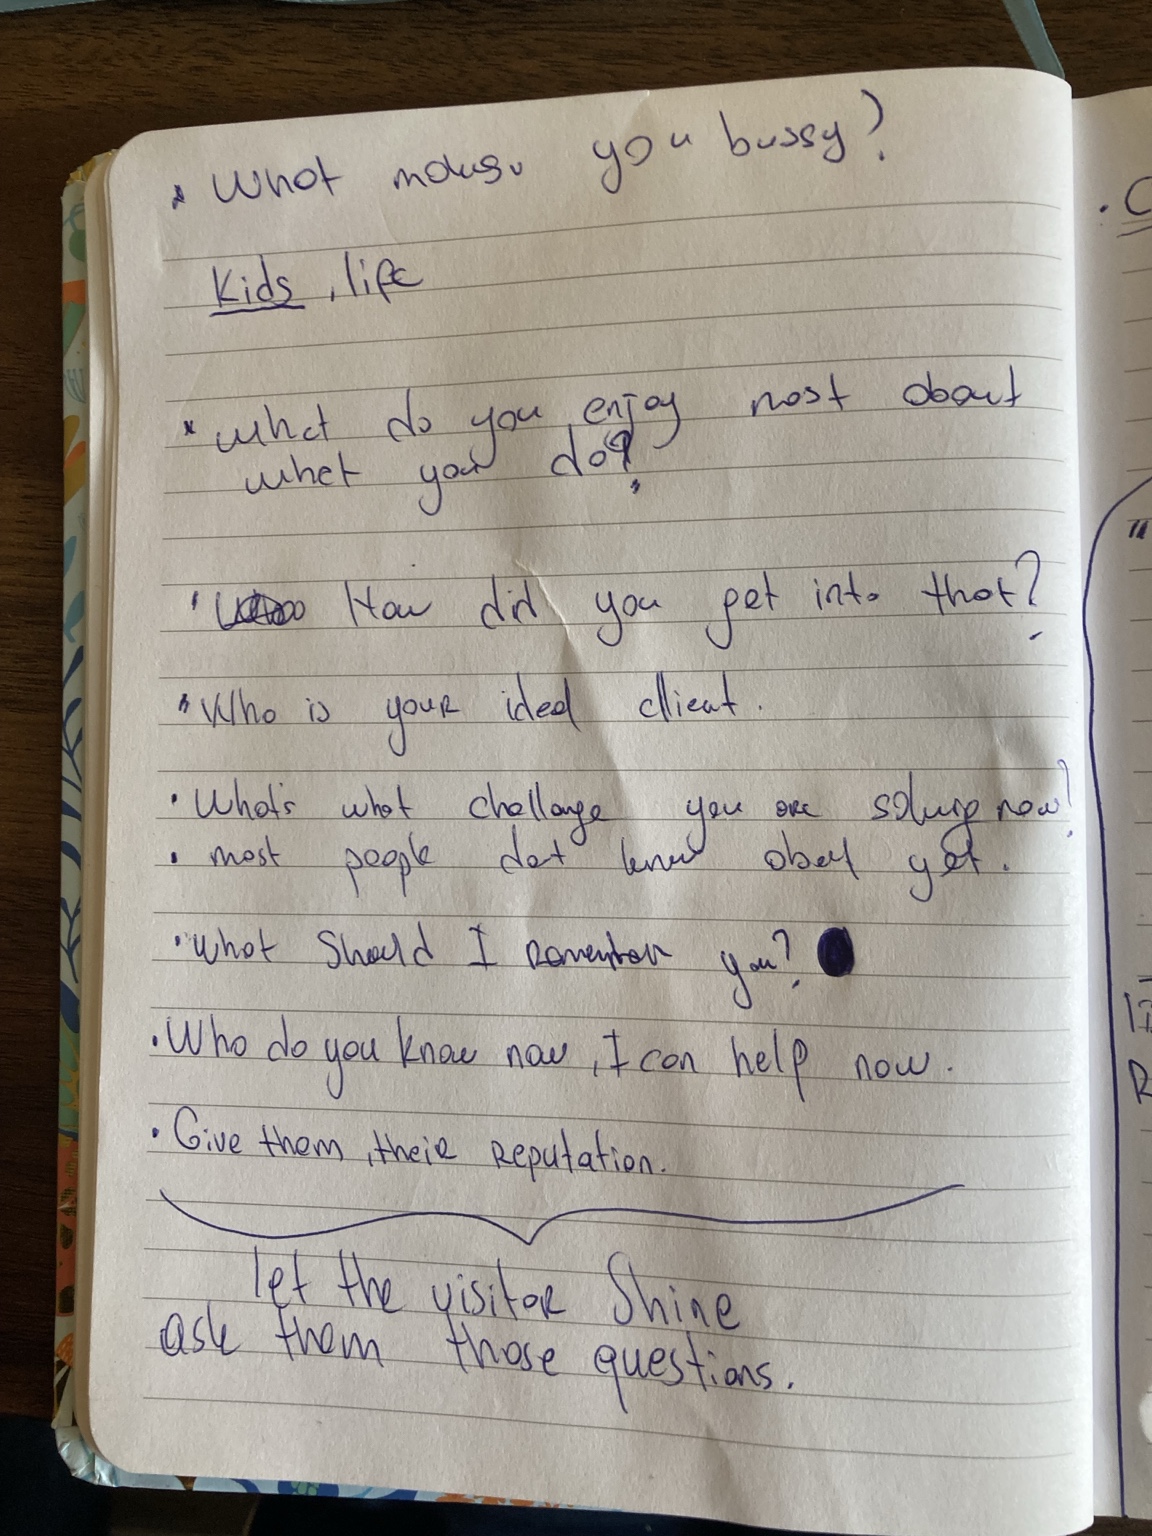 • What you bussy?
Kids, life
• what do you enjoy most about
what you do?
• How did you get into that?
• Who is your ideal client.
• What's what challange you are solving now?
• most people dot know obout yet.
• What Should I remember you?
• Who do you know now, I can help now.
• Give them, their reputation.
let the visitor Shine
ask them those questions.